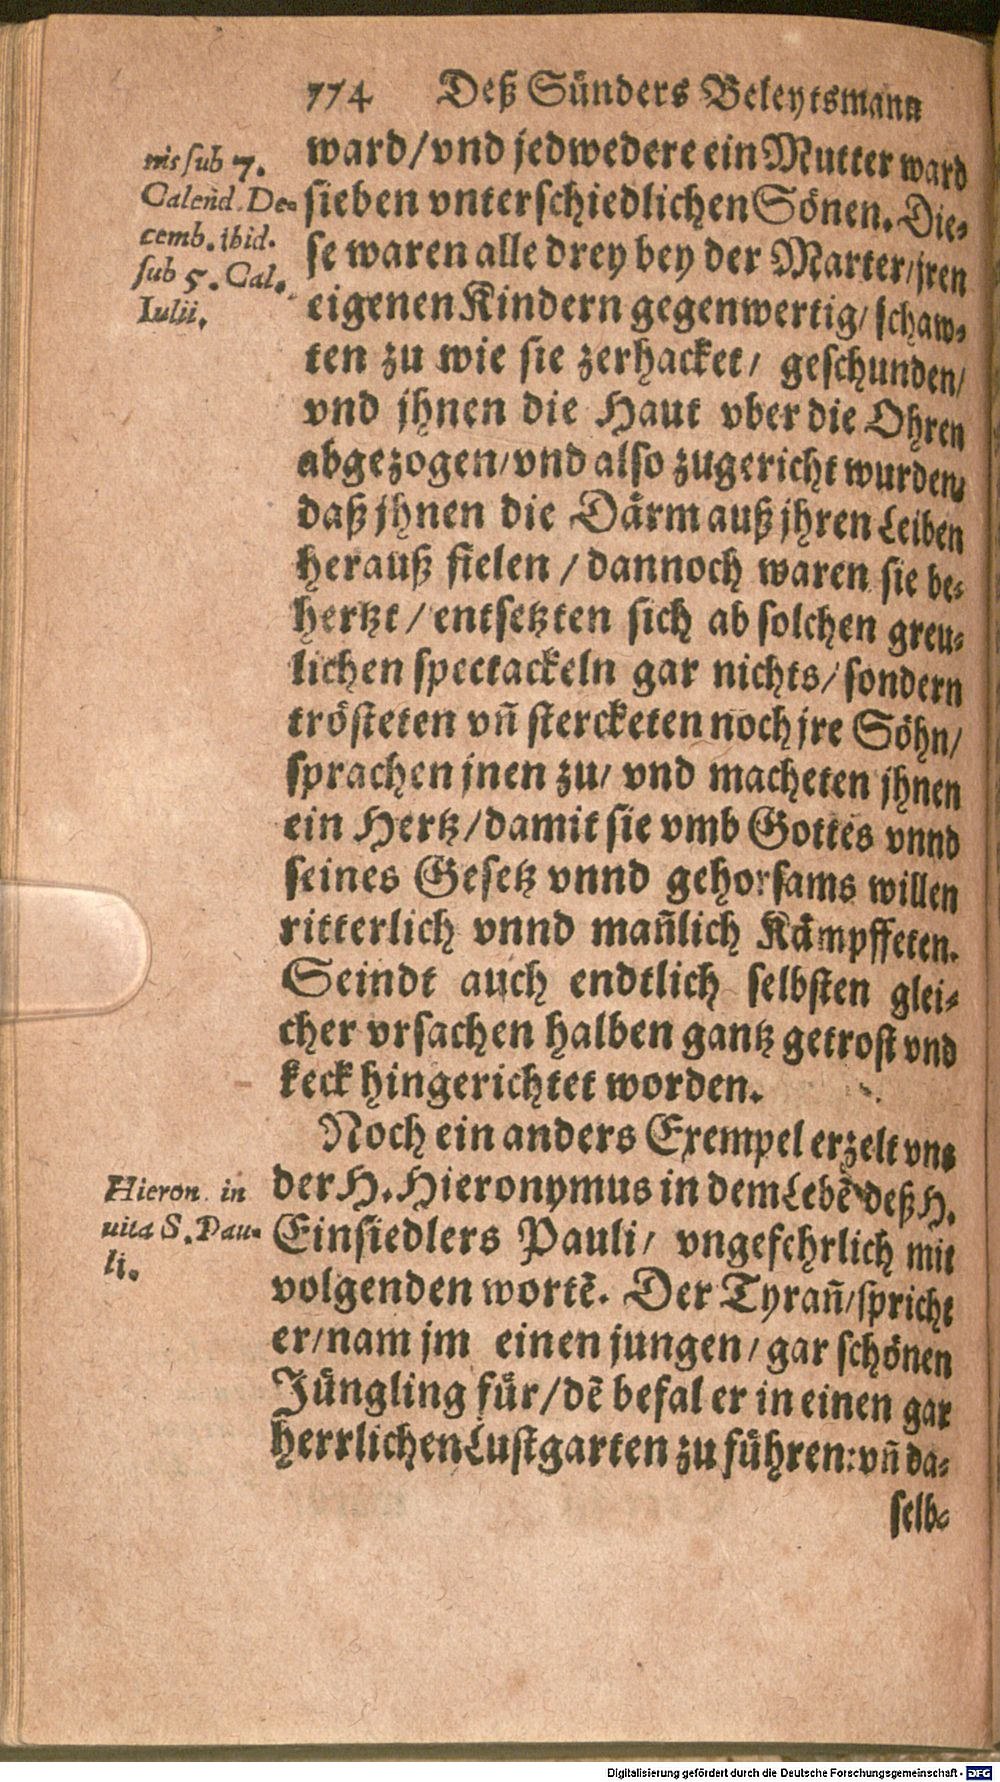 774 Deß Sünders Beleytsmann
nis sub 7.
Calend. De-
cemb. ibid.
sub 5. Cal.
Iulii.
ward/vnd jedwedere ein Mutter ward
sieben vnterschiedlichen Sönen. Die-
se waren alle drey bey der Marter/jren
eigenen Kindern gegenwertig/ schaw-
ten zu wie sie zerhacket/ geschunden/
vnd jhnen die Haut vber die Ohren
abgezogen/vnd also zugericht wurden/
daß jhnen die Därm auß jhren Leiben
herauß fielen / dannoch waren sie be-
hertzt / entsetzten sich ab solchen greu-
lichen spectackeln gar nichts/ sondern
trösteten vñ sterckreten noch jre Söhn/
sprachen jnen zu/ vnd macheten jhnen
ein Hertz/damit sie vmb Gottes vnnd
seines Gesetz vnnd gehorsams willen
ritterlich vnnd mañlich Kämpffeten.
Seindt auch endtlich selbsten glei-
cher vrsachen halben gantz getrost vnd
keck hingerichtet worden.
Noch ein anders Exempel erzelt vns
Hieron. in
uita S. Pau-
li.
der H. Hieronymus in dem Lebẽ deß H.
Einsiedlers Pauli/ vngefehrlich mit
volgenden wortẽ. Der Tyrañ/spricht
er/nam jm einen jungen/ gar schönen
Jüngling für/dẽ befal er in einen gar
herrlichen Lustgarten zu führen: vñ da-
selb-
Digitalisierung gefördert durch die Deutsche Forschungsgemeinschaft - DFG